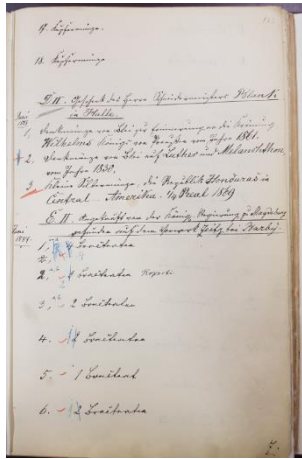 17. Kupfermünze.
18. Kupfermünze
D. IV. Geschenk des Herrn Schneidermeisters
in Halle.
Juni
1, Denkmünze von Blei zur Erinnerung an die Krönung
Wilhelms Königs von Preußen im Jahre 1861.
2. Denkmünze von Blei auf Luther und Melanchthon
vom Jahre 1830.
3, Kleine Silbermünze, die Republik Honduras in
Central-Amerika. 1/4 Real 1869
E. II. von der Königl. Regierung zu Magdeburg
gefunden auf dem Vorwerk Zeitz bei Barby.
Juni
1884.
1, Bracteaten
2, Bracteaten
3, 2 Bracteaten
4. 2 Bracteaten
5. 1 Bracteat
6. 2 Bracteaten